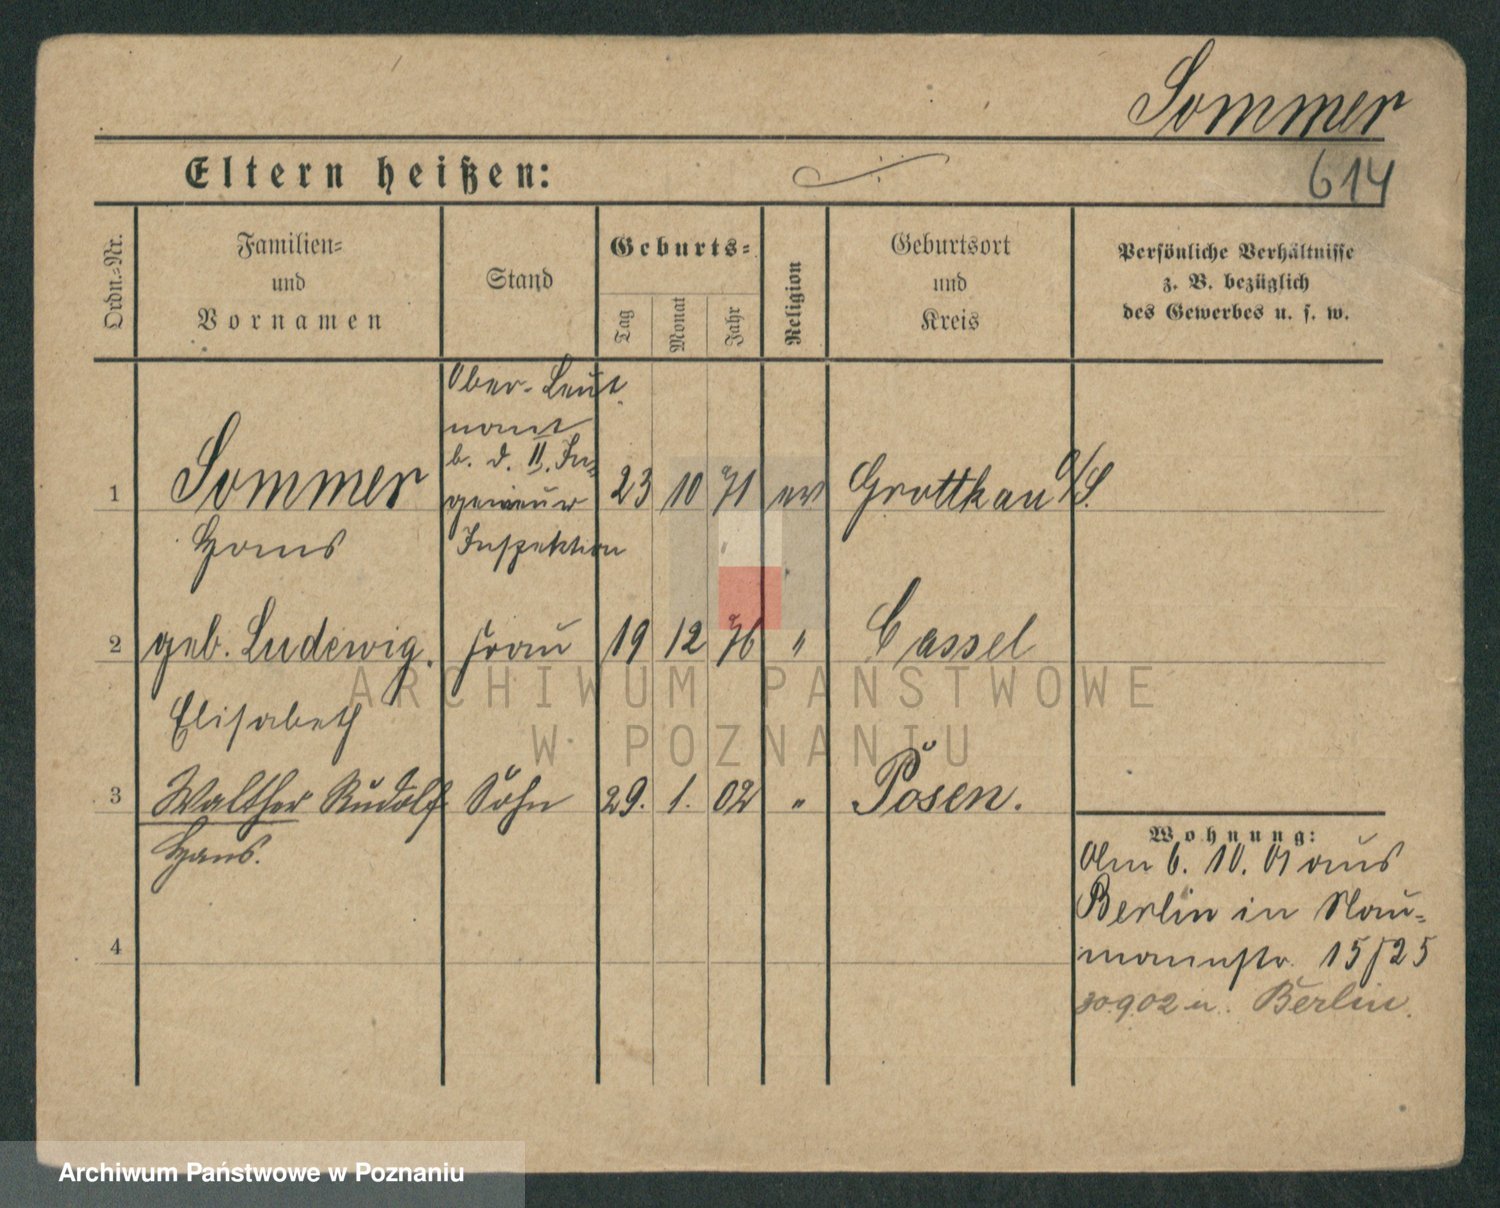 Sommer
614
Eltern heißen:
Ordn.-Nr.
Familien-
und
Vornamen
Stand
Geburts-
Tag
Monat
Jahr
Religion
Geburtsort
und
Kreis
Persönliche Verhältnisse
z. B. bezüglich
des Gewerbes u. s. w.
1 Sommer
Hans
Ober-Leut
nant
b. d. II. In-
genieur
Inspektion
23 10 71 ev Grottkau O/S.
2 geb. Ludewig. Frau 19 12 76 " Cassel
Elisabeth
3 Walther Rudolf Sohn 29. 1. 02 " Posen.
Hans.
4
Wohnung:
Am 6. 10. 01 aus
Berlin in Nau-
mannstr. 15/25
30.9.02 n. Berlin.
ARCHIWUM PAŃSTWOWE
W POZNANIU
Archiwum Państwowe w Poznaniu